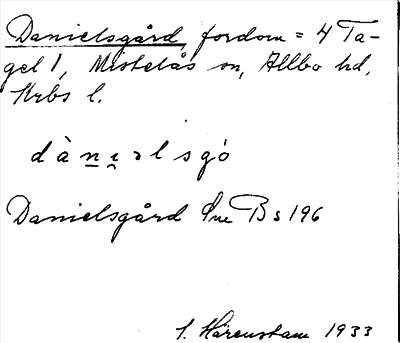 Danielsgård, fordom = 4 Ta-
gel 1, Mistelås sn, Allbo hd,
Krbs l.
dànı̯əlsgó
Danielsgård Sne B s 196
S. Härenstam 1933